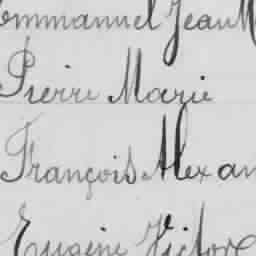 Emmanuel Jean M
Pierre Marie
François Alexan
Eugène Victore